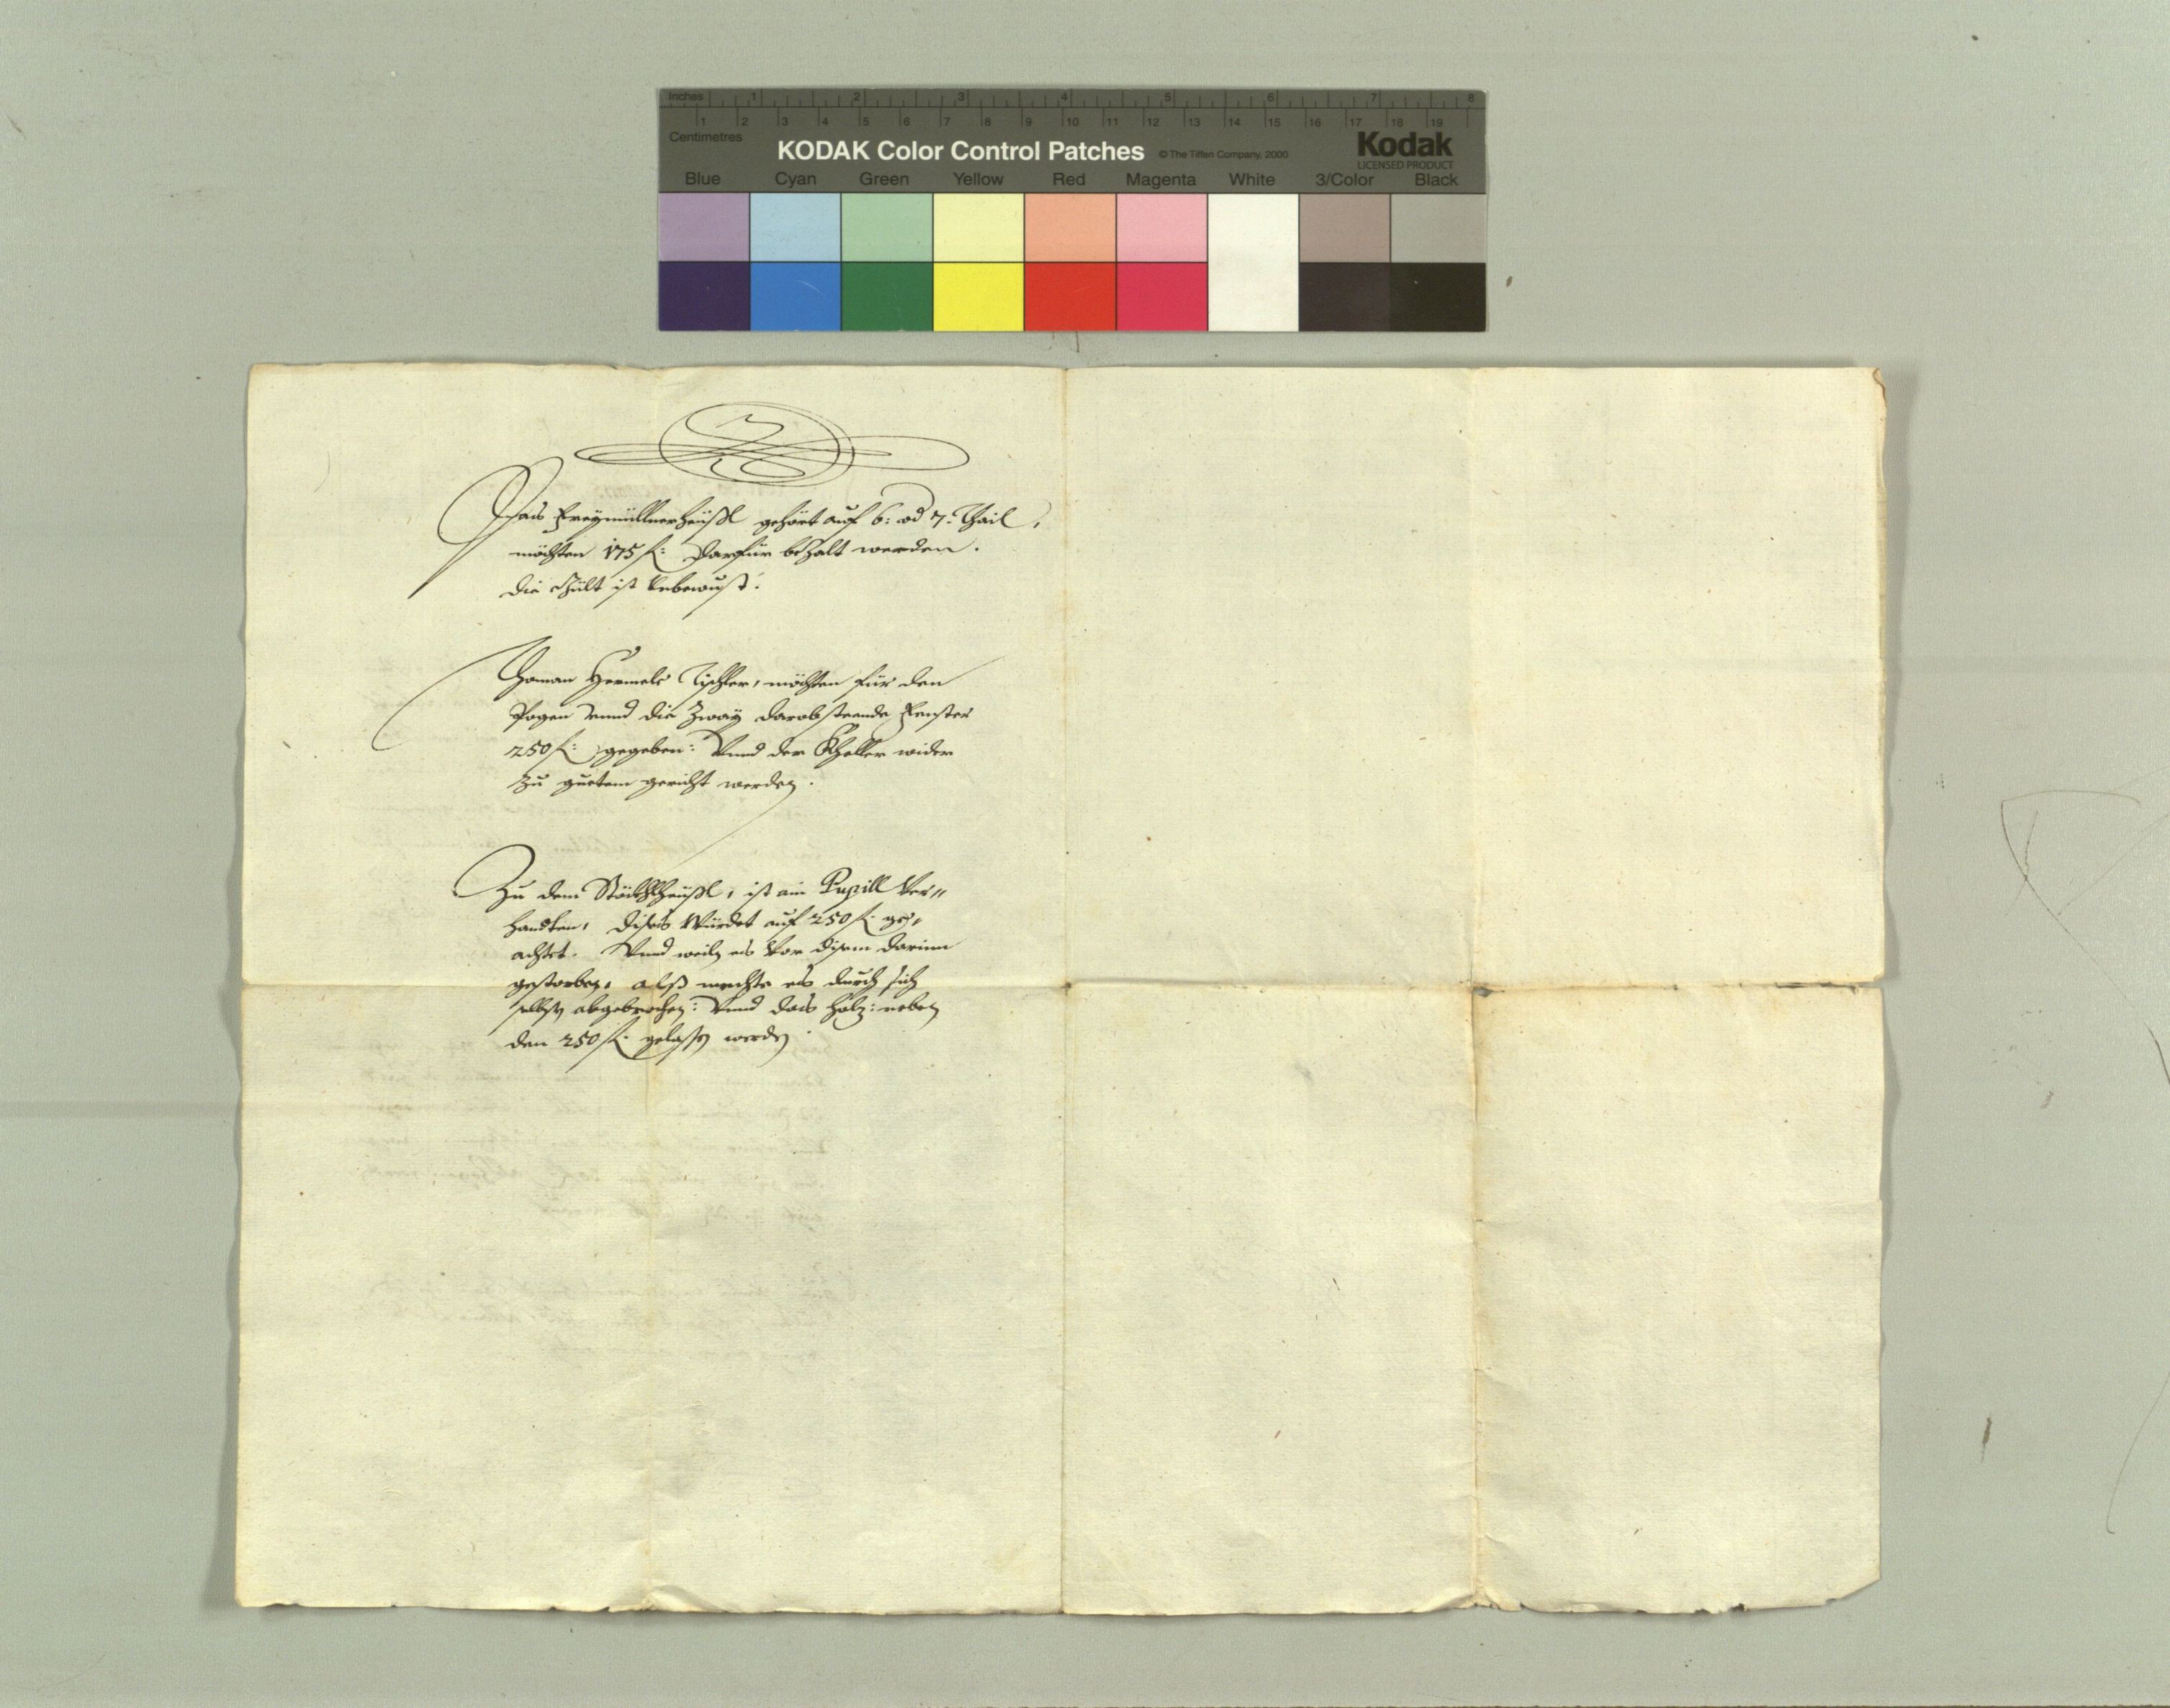 Inches 1 2 3 4 5 6 7 8
1 2 3 4 5 6 7 8 9 10 11 12 13 14 15 16 17 18 19
Centimetres
KODAK Color Control Patches © The Tiffen Company, 2000 Kodak
LICENSED PRODUCT
Blue Cyan Green Yellow Red Magenta White 3/Color Black
Das Freymüllnerheüsl gehört auf 6: od 7: Thail,
möchten 175 f: darfür bezalt werden.
die Gült ist Unbewust.
Thoman Hermele Tischler, möchten für den
Pogen vnnd die Zway darobsteende Fenster
250 f: gegeben: Vnnd der Kheller wider
Zu guetem gericht werden.
Zu dem heüsl, ist ain Pupill Ver„
handten, dises Würdet auf 250 f. ge„
achtet. Vnnd weiln es Vor disem darinn
gestorben, alß mechte es durch sich
selbst abgebrochen: Vnnd das Holz: neben
den 250 f. gelassen werden.